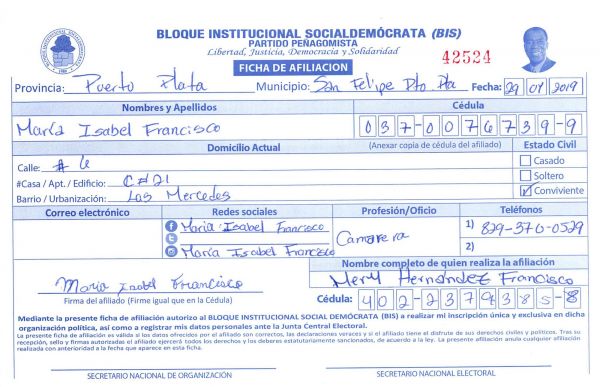 BLOQUE INSTITUCIONAL SOCIALDEMÓCRATA (BIS)
PARTIDO PEÑAGOMISTA
Libertad, Justicia, Democracia y Solidaridad
42524
FICHA DE AFILIACION
Provincia: Puerto Plata Municipio: San Felipe Pto Pta Fecha: 29 07 2019
Nombres y Apellidos Cédula
María Isabel Francisco 037-0076739-9
Domicilio Actual (Anexar copia de cédula del afiliado) Estado Civil
Calle: # 6 Casado
#Casa / Apt. / Edificio: C#21 Soltero
Barrio / Urbanización: Las Mercedes Conviviente
Correo electrónico Redes sociales Profesión/Oficio Teléfonos
Maria Isabel Francisco Camarera 1) 829-370-0529
María Isabel Francisco 2)
Nombre completo de quien realiza la afiliación
Maria Isabel Francisco Mery Hernández Francisco
Firma del afiliado (Firme igual que en la Cédula) Cédula: 402-2379385-8
Mediante la presente ficha de afiliación autorizo al BLOQUE INSTITUCIONAL SOCIAL DEMÓCRATA (BIS) a realizar mi inscripción única y exclusiva en dicha
organización política, así como a registrar mis datos personales ante la Junta Central Electoral.
La presente ficha de afiliación es valida si los datos ofrecidos por el afiliado son correctos, las declaraciones veraces y si el titular tiene el disfrute de sus derechos civiles y políticos. Tras su
recepción, sello y firmas autorizadas el afiliado ejercerá todos los derechos y los deberes estatutariamente sancionados, de acuerdo a la ley. La presente afiliación anula cualquier afiliación
realizada con anterioridad a la fecha que aparece en esta ficha.
SECRETARIO NACIONAL DE ORGANIZACIÓN SECRETARIO NACIONAL ELECTORAL